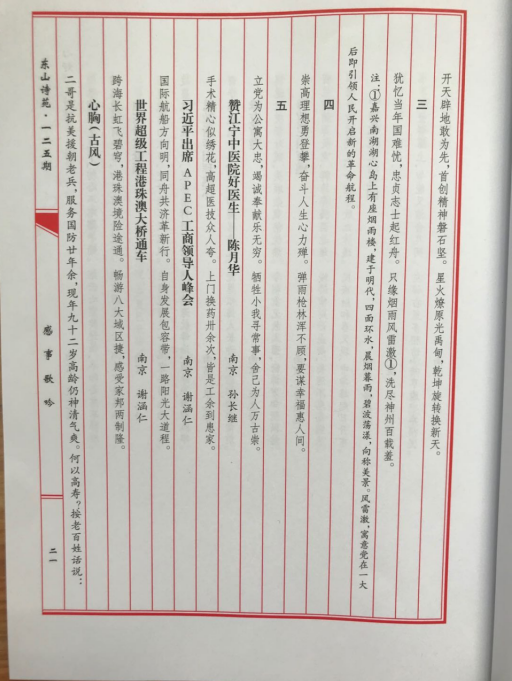 开天辟地敢为先，首创精神磐石坚。星火燎原光禹甸，乾坤旋转换新天。
三
犹忆当年国难忧，忠贞志士起红舟。只缘烟雨风雷激①，洗尽神州百载羞。
注：①嘉兴南湖湖心岛上有座烟雨楼，建于明代，四面环水，晨烟暮雨，碧波荡漾，向称美景。风雷激，寓意党在一大
后即引领人民开启新的革命航程。
四
崇高理想勇登攀，奋斗人生心力殚。弹雨枪林浑不顾，要谋幸福惠人间。
五
立党为公寓大忠，竭诚奉献乐无穷。牺牲小我寻常事，舍己为人万古崇。
赞江宁中医院好医生——陈月华
南京 孙长继
手术精心似绣花，高超医技众人夸。上门换药卅余次，皆是工余到患家。
习近平出席 APEC 工商领导人峰会
南京 谢涵仁
国际航船方向明，同舟共济革新行。自身发展包容带，一路阳光大道程。
世界超级工程港珠澳大桥通车
南京 谢涵仁
跨海长虹飞碧穹，港珠澳境险途通。畅游八大城区捷，感受家邦两制隆。
心胸（古风）
二哥是抗美援朝老兵，服务国防廿年余，现年九十二岁高龄仍神清气爽。何以高寿？按老百姓话说：
东山诗苑·一二五期
感事歌吟
二一